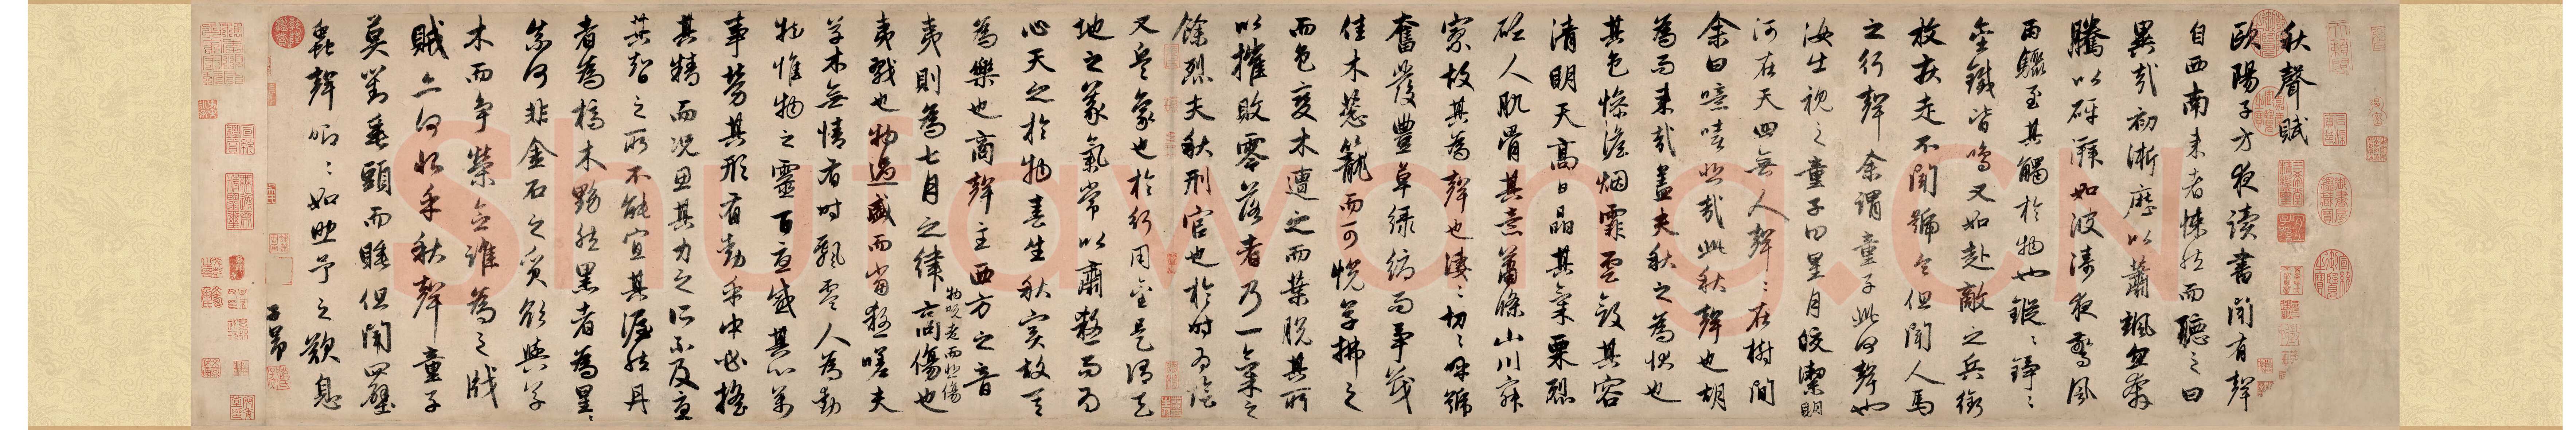 秋聲賦
歐陽子方夜讀書聞有聲
自西南来者悚然而聽之曰
異哉初淅瀝以蕭颯忽奔
騰以砰湃如波濤夜驚風
雨驟至其觸於物也鏦〻錚〻
金鐵皆鳴又如赴敵之兵銜
枚疾走不聞號令但聞人馬
之行聲余謂童子此何聲也
汝出視之童子曰星月皎潔明
河在天四無人聲〻在樹間
余曰噫嘻悲哉此秋聲也胡
為而来哉盖夫秋之為状也
其色慘澹烟霏雲斂其容
清明天高日晶其氣栗烈
砭人肌骨其意蕭條山川寂
寥故其為聲也淒〻切〻呼號
奮發豐草緑縟而争茂
佳木葱籠而可悅草拂之
而色變木遭之而葉脱其所
以摧敗零落者乃一氣之
餘烈夫秋刑官也於時為陰
又兵象也於行用金是謂天
地之義氣常以肅殺而為
心天之於物春生秋實故其
為樂也商聲主西方之音
夷則為七月之律商傷也
物既老而悲傷
夷戮也物過盛而當殺嗟夫
草木無情有時飄零人為動
物惟物之靈百憂感其心萬
事勞其形有動乎中必搖
其精而況思其力之所不及憂
其智之所不能宜其渥然丹
者為槁木黟然黑者為星〻
奈何非金石之質欲與草
木而争榮念誰為之戕
賊亦何恨乎秋聲童子
莫對垂頭而睡但聞四壁
蟲聲唧〻如助予之歎息
子昂
Shufawang.CN